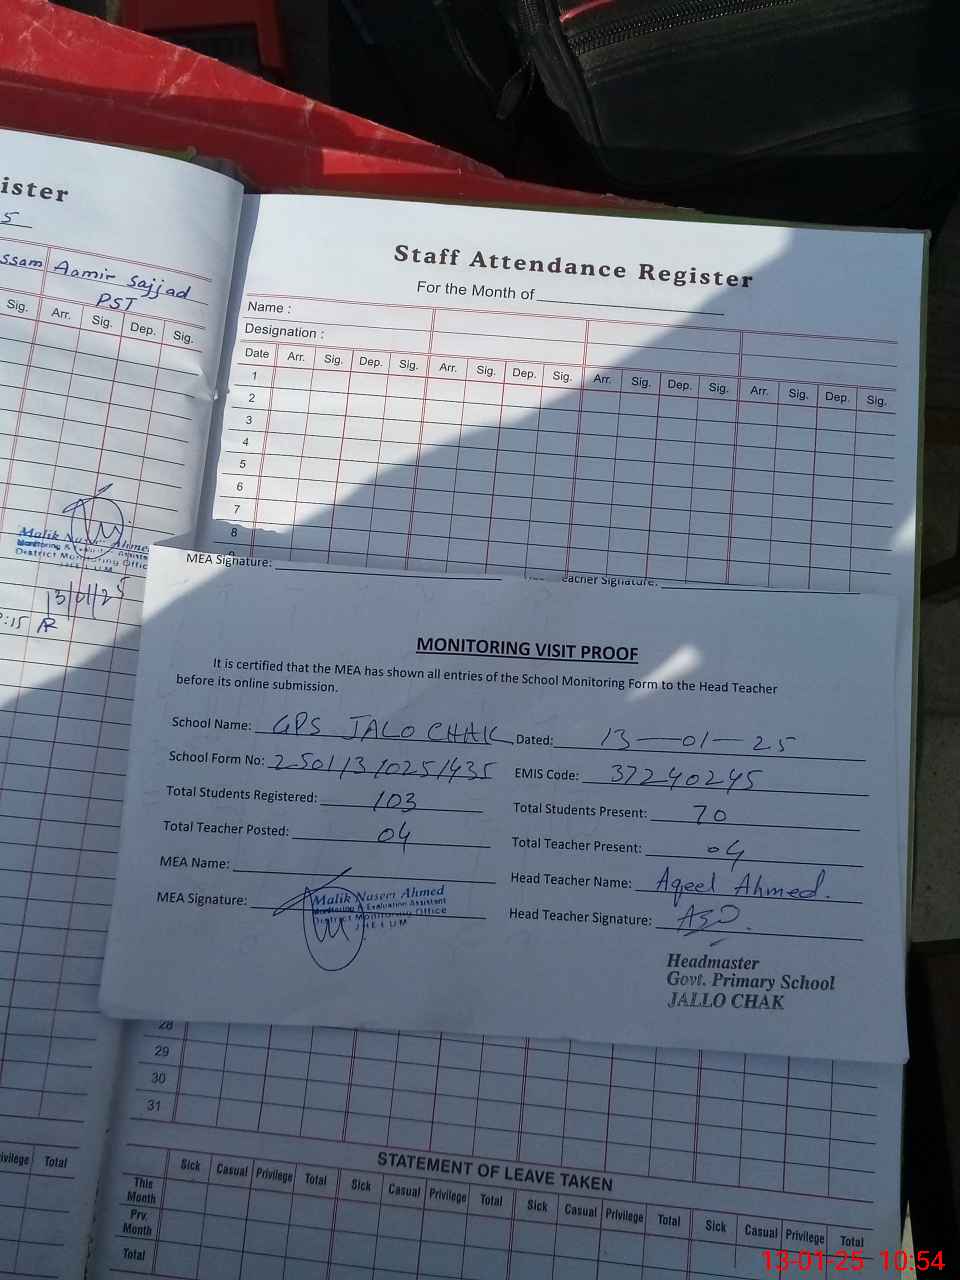 ister
5
ssam Aamir Sajjad
PST
Sig. Arr. Sig. Dep. Sig.
Malik Nasem Ahmed
Monitoring & Evaluation Assistant
District Monitoring Office
JHELUM
13/01/25
:15
ivilege Total
Staff Attendance Register
For the Month of
Name :
Designation :
Date Arr. Sig. Dep. Sig. Arr. Sig. Dep. Sig. Arr. Sig. Dep. Sig. Arr. Sig. Dep. Sig.
1
2
3
4
5
6
7
8
9
MEA Signature: eacher Signature:
MONITORING VISIT PROOF
It is certified that the MEA has shown all entries of the School Monitoring Form to the Head Teacher
before its online submission.
School Name: GPS JALO CHAK Dated: 13-01-25
School Form No: 25011310251435 EMIS Code: 37240245
Total Students Registered: 103 Total Students Present: 70
Total Teacher Posted: 04 Total Teacher Present: 04
MEA Name: Head Teacher Name: Aqeel Ahmed.
MEA Signature: Head Teacher Signature:
Malik Nasem Ahmed
Monitoring & Evaluation Assistant
District Monitoring Office
JHELUM
Headmaster
Govt. Primary School
JALLO CHAK
28
29
30
31
STATEMENT OF LEAVE TAKEN
Sick Casual Privilege Total Sick Casual Privilege Total Sick Casual Privilege Total Sick Casual Privilege Total
This Month
Prv. Month
Total
13-01-25 10:54